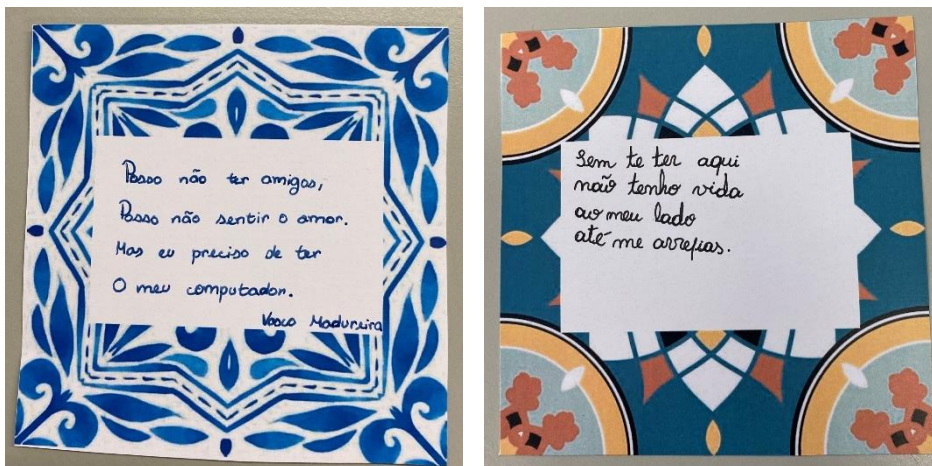 Posso não ter amigos,
Posso não sentir o amor.
Mas eu preciso de ter
O meu computador.
Vasco Madureira
Sem te ter aqui
não tenho vida
ao meu lado
até me arrepias.